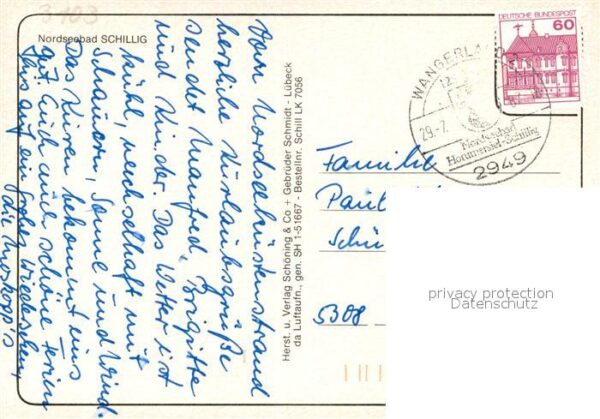 3103
Nordseebad SCHILLIG
Vom Nordseeküstenstrand
herzliche Urlaubsgrüße
sendet Manfred, Brigitte
und Kinder. Das Wetter ist
kühl, wechselhaft mit
Schauern, Sonne und Wind.
Das Klima bekommt uns
gut und auch schöne Ferien
bis auf ein frohes Wiedersehen,
die
Herst. u. Verlag Schöning & Co + Gebrüder Schmidt - Lübeck
da Luftaufn., gen. SH 1-51667 - Bestellnr. Schill LK 7056
DEUTSCHE BUNDESPOST
60
WANGERLA
29.-7.
Nordseebad
Horumersiel-Schillig
2949
Familie
Paul
5308
privacy protection
Datenschutz